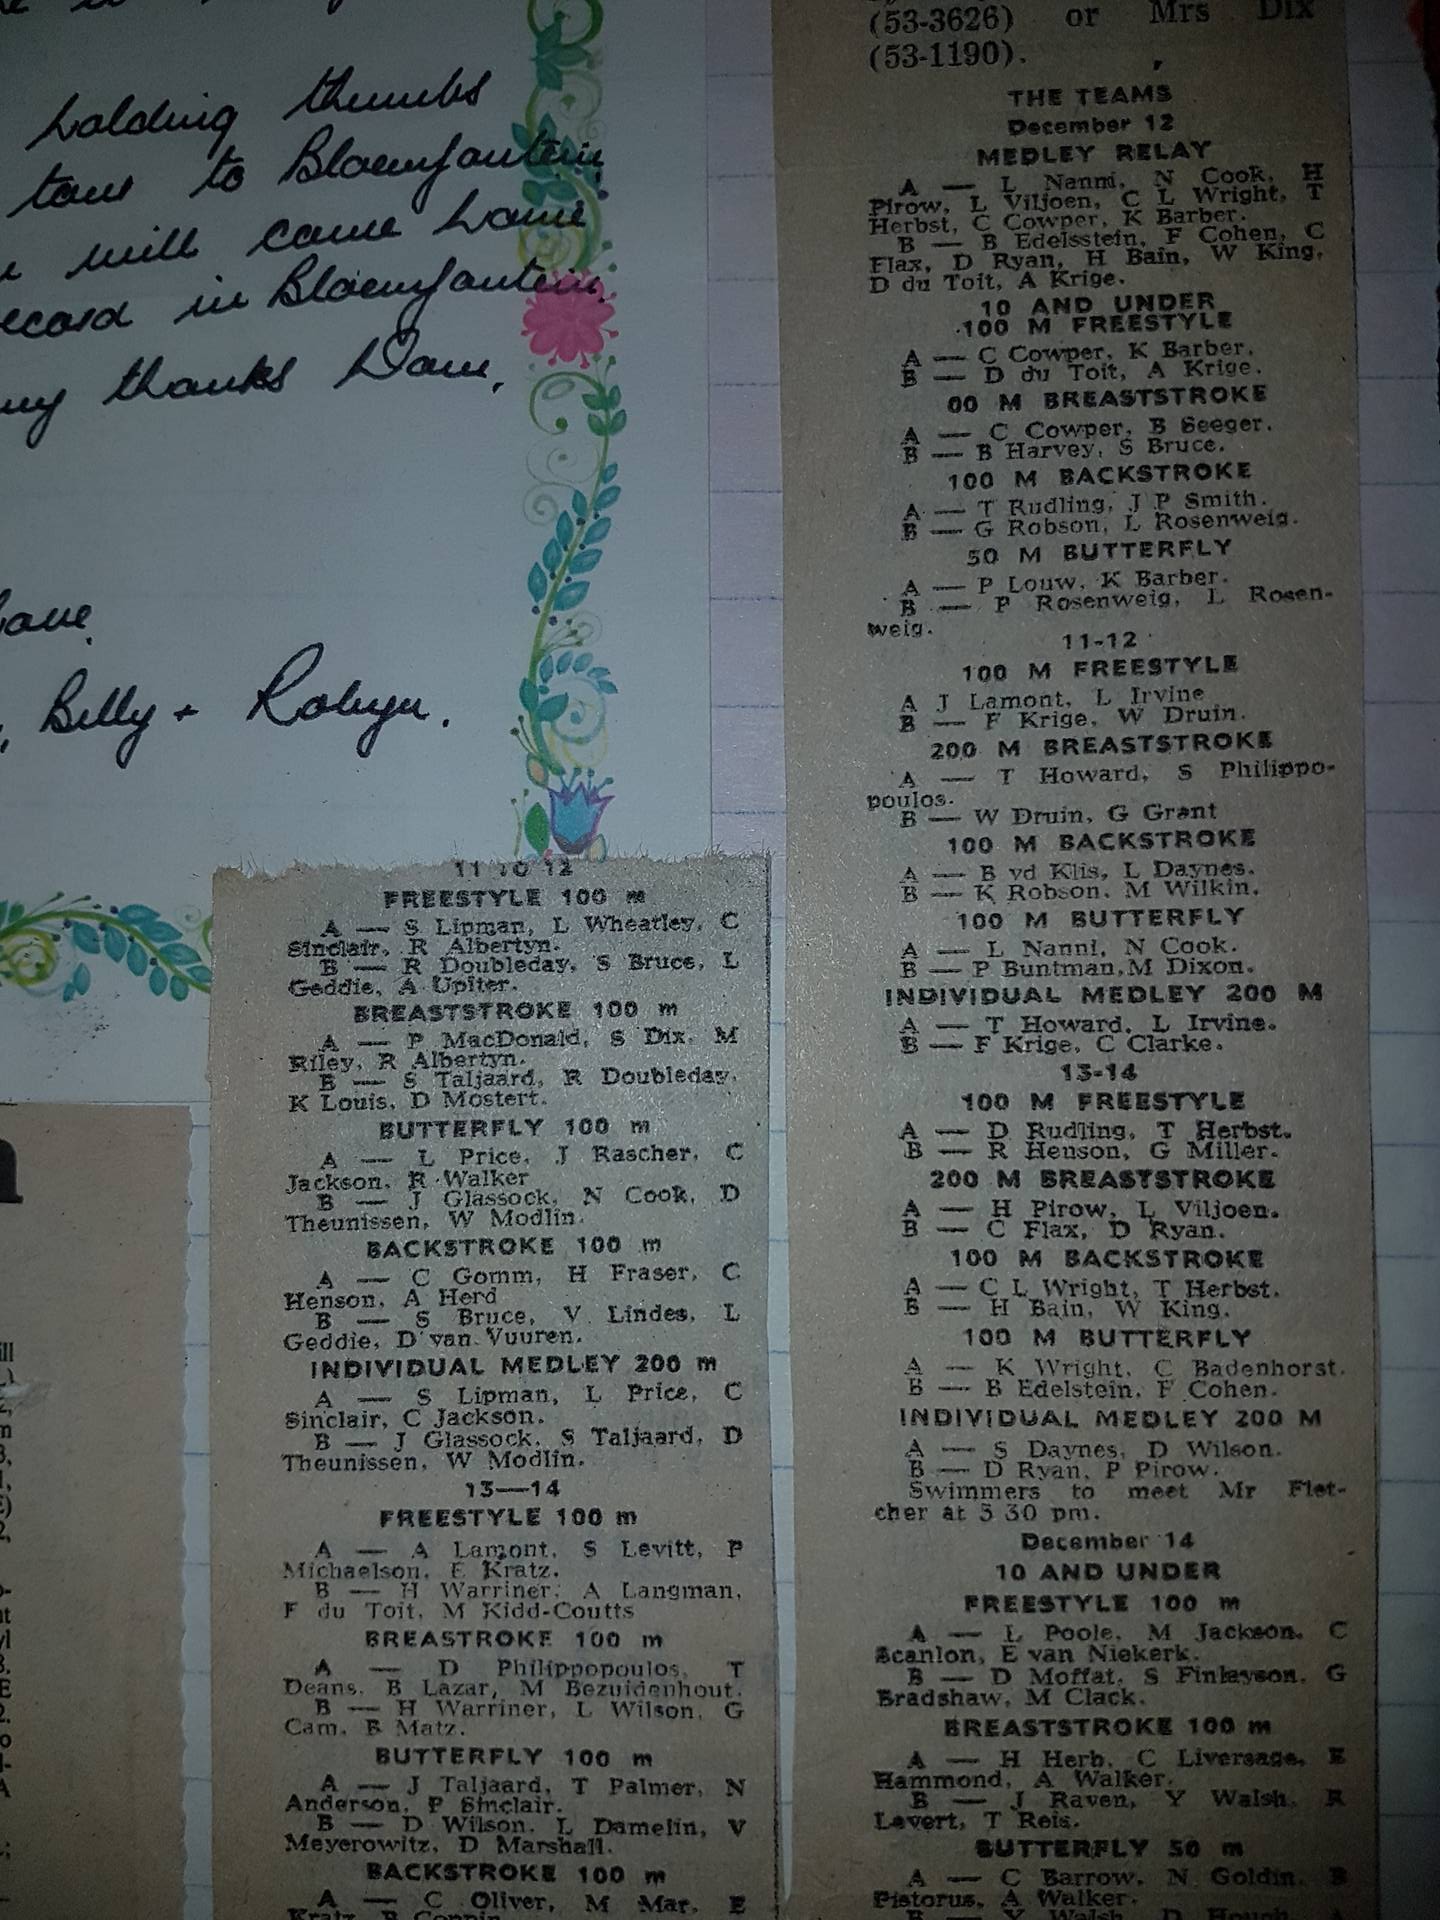 holding thumbs
to Bloemfontein
will come home
in Bloemfontein
thanks Dave,
Billy + Robyn.
(53-3626) or Mrs Dix
(53-1190).
THE TEAMS
December 12
MEDLEY RELAY
A — L Nanni, N Cook, H
Pirow, L Viljoen, C L Wright, T
Herbst, C Cowper, K Barber.
B — B Edelsstein, F Cohen, C
Flax, D Ryan, H Bain, W King,
D du Toit, A Krige.
10 AND UNDER
100 M FREESTYLE
A — C Cowper, K Barber.
B — D du Toit, A Krige.
00 M BREASTSTROKE
A — C Cowper, B Seeger.
B — B Harvey, S Bruce.
100 M BACKSTROKE
A — T Rudling, J P Smith.
B — G Robson, L Rosenweig.
50 M BUTTERFLY
A — P Louw, K Barber.
B — P Rosenweig, L Rosen-
weig.
11-12
100 M FREESTYLE
A J Lamont, L Irvine
B — F Krige, W Druin.
200 M BREASTSTROKE
A — T Howard, S Philippo-
poulos.
B — W Druin, G Grant
100 M BACKSTROKE
A — B vd Klis, L Daynes.
B — K Robson, M Wilkin.
100 M BUTTERFLY
A — L Nanni, N Cook.
B — P Buntman, M Dixon.
INDIVIDUAL MEDLEY 200 M
A — T Howard, L Irvine.
B — F Krige, C Clarke.
13-14
100 M FREESTYLE
A — D Rudling, T Herbst.
B — R Henson, G Miller.
200 M BREASTSTROKE
A — H Pirow, L Viljoen.
B — C Flax, D Ryan.
100 M BACKSTROKE
A — C L Wright, T Herbst.
B — H Bain, W King.
100 M BUTTERFLY
A — K Wright, C Badenhorst.
B — B Edelstein, F Cohen.
INDIVIDUAL MEDLEY 200 M
A — S Daynes, D Wilson.
B — D Ryan, P Pirow.
Swimmers to meet Mr Flet-
cher at 5 30 pm.
December 14
10 AND UNDER
FREESTYLE 100 m
A — L Poole, M Jackson, C
Scanlon, E van Niekerk.
B — D Moffat, S Finlayson, G
Bradshaw, M Clack.
BREASTSTROKE 100 m
A — H Herb, C Liversage, E
Hammond, A Walker.
B — J Raven, Y Walsh, R
Levert, T Reis.
BUTTERFLY 50 m
A — C Barrow, N Goldin, B
Pistorus, A Walker.
11 TO 12
FREESTYLE 100 m
A — S Lipman, L Wheatley, C
Sinclair, R Albertyn.
B — R Doubleday, S Bruce, L
Geddie, A Upiter.
BREASTSTROKE 100 m
A — P MacDonald, S Dix, M
Riley, R Albertyn.
B — S Taljaard, R Doubleday,
K Louis, D Mostert.
BUTTERFLY 100 m
A — L Price, J Rascher, C
Jackson, R Walker
B — J Glassock, N Cook, D
Theunissen, W Modlin.
BACKSTROKE 100 m
A — C Gomm, H Fraser, C
Henson, A Herd
B — S Bruce, V Lindes, L
Geddie, D van Vuuren.
INDIVIDUAL MEDLEY 200 m
A — S Lipman, L Price, C
Sinclair, C Jackson.
B — J Glassock, S Taljaard, D
Theunissen, W Modlin.
13—14
FREESTYLE 100 m
A — A Lamont, S Levitt, P
Michaelson, E Kratz.
B — H Warriner, A Langman,
F du Toit, M Kidd-Coutts
BREASTROKE 100 m
A — D Philippopoulos, T
Deans, B Lazar, M Bezuidenhout.
B — H Warriner, L Wilson, G
Cam, B Matz.
BUTTERFLY 100 m
A — J Taljaard, T Palmer, N
Anderson, P Sinclair.
B — D Wilson, L Damelin, V
Meyerowitz, D Marshall.
BACKSTROKE 100 m
A — C Oliver, M Mar, E